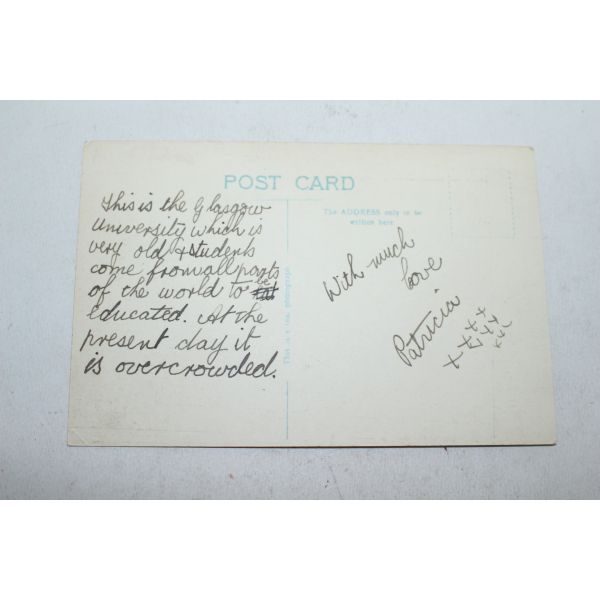 POST CARD
This is the Glasgow
University which is
very old & students
come from all parts
of the world to be
educated. At the
present day it
is overcrowded.
This is a real photograph
The ADDRESS only to be
written here
With much
love
Patricia
x x x x